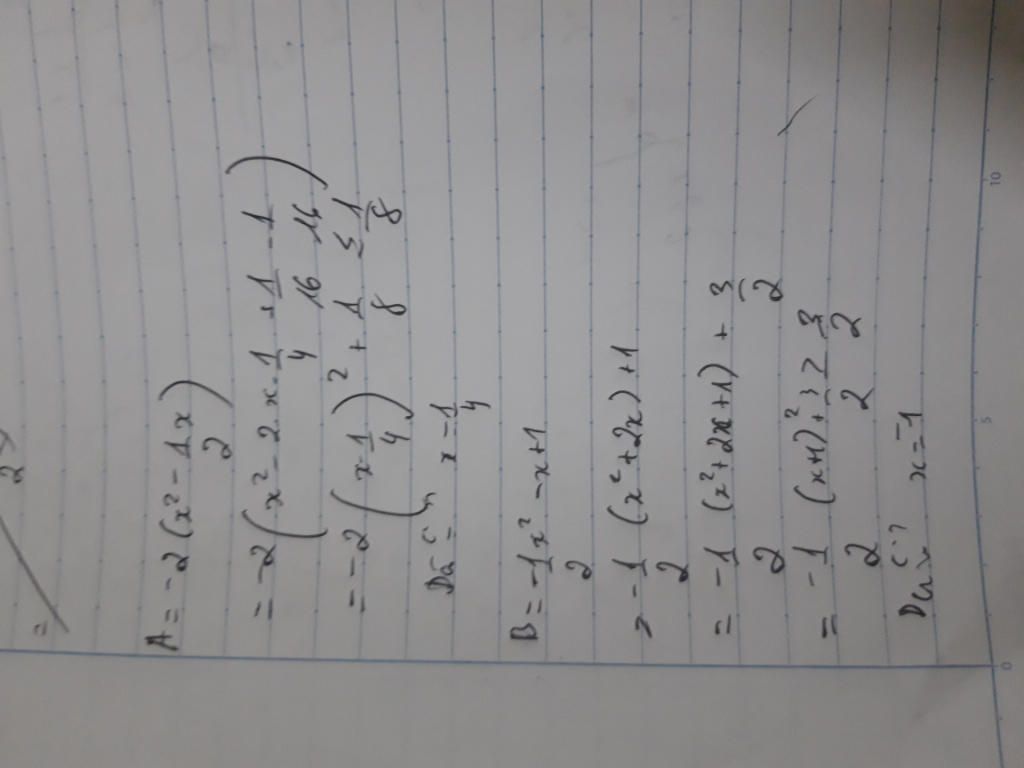 A = -2 (x² - 1/2 x)
= -2 (x² - 2x · 1/4 + 1/16 - 1/16)
= -2 (x - 1/4)² + 1/8 ≤ 1/8
Dấu "=" x = 1/4
B = -1/2 x² - x + 1
= -1/2 (x² + 2x) + 1
= -1/2 (x² + 2x + 1) + 3/2
= -1/2 (x+1)² + 3/2 ≥ 3/2
Dấu x = -1
0
5
10